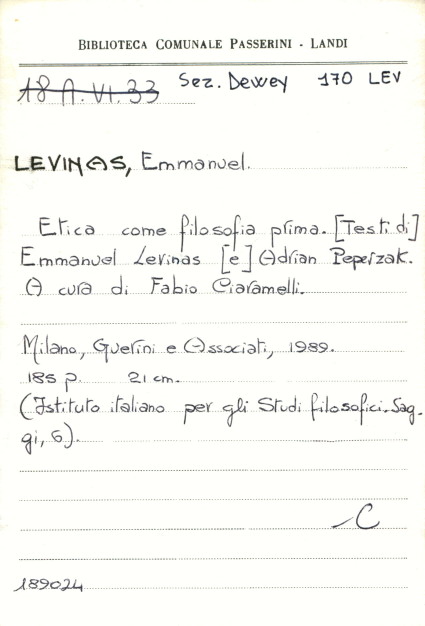 BIBLIOTECA COMUNALE PASSERINI - LANDI
18 A.VI.33 Sez. Dewey 170 LEV
LEVINAS, Emmanuel.
Etica come filosofia prima. [Testi di]
Emmanuel Levinas [e] Adrian Peperzak.
A cura di Fabio Ciaramelli.
Milano, Guerini e Associati, 1989.
185 p. 21 cm.
(Istituto italiano per gli Studi filosofici. Sag-
gi, 6).
C
189024